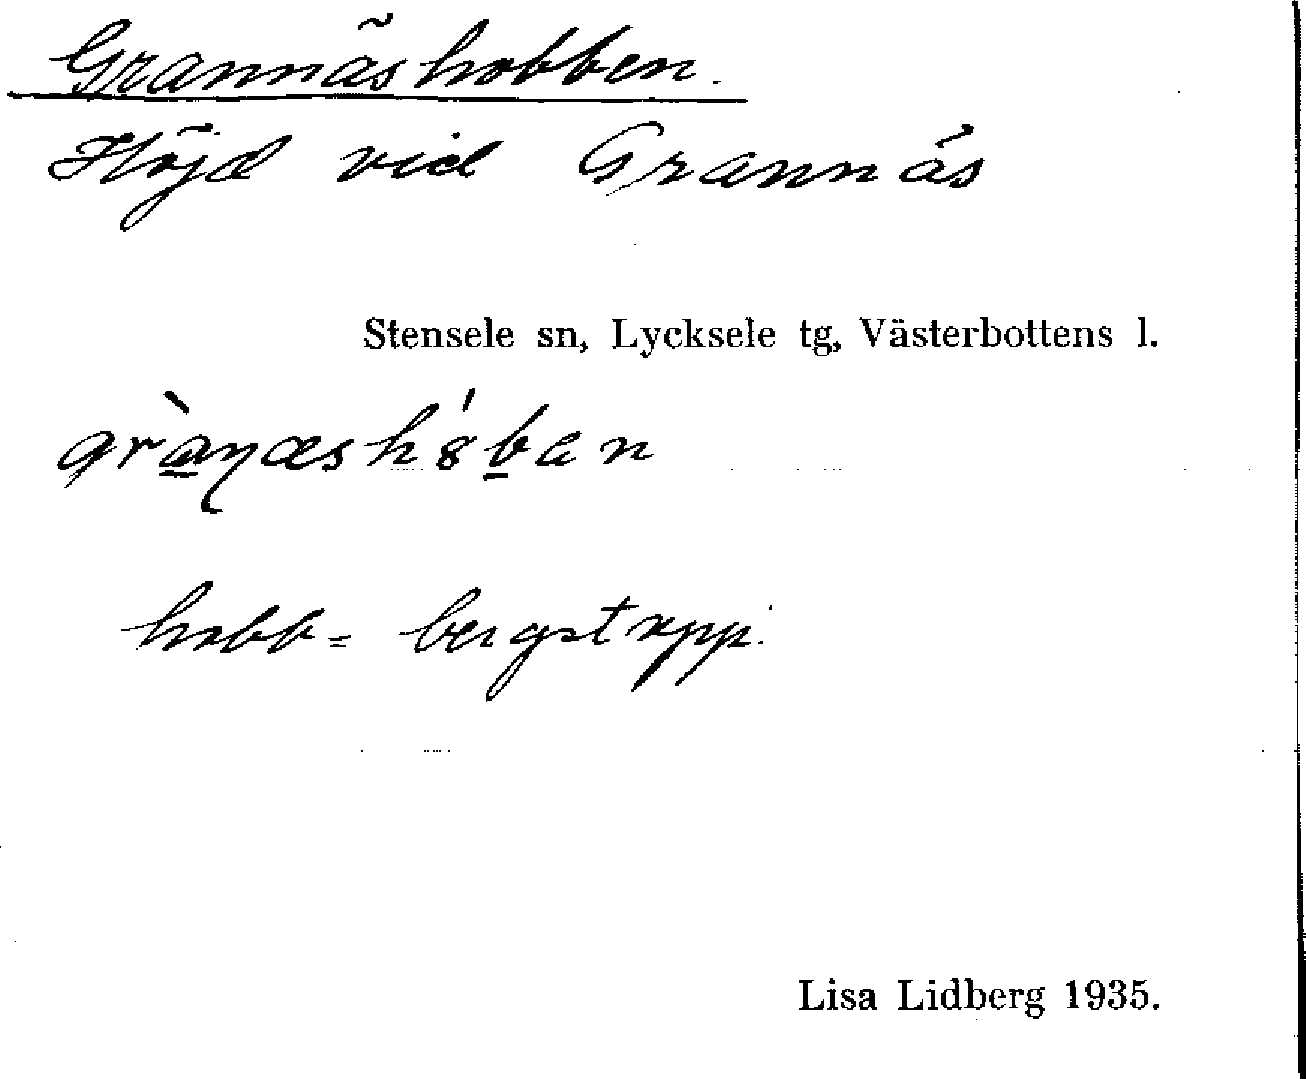 Grannäshobben.
Höjd vid Grannäs
Stensele sn, Lycksele tg, Västerbottens l.
hobb = bergstopp.
Lisa Lidberg 1935.